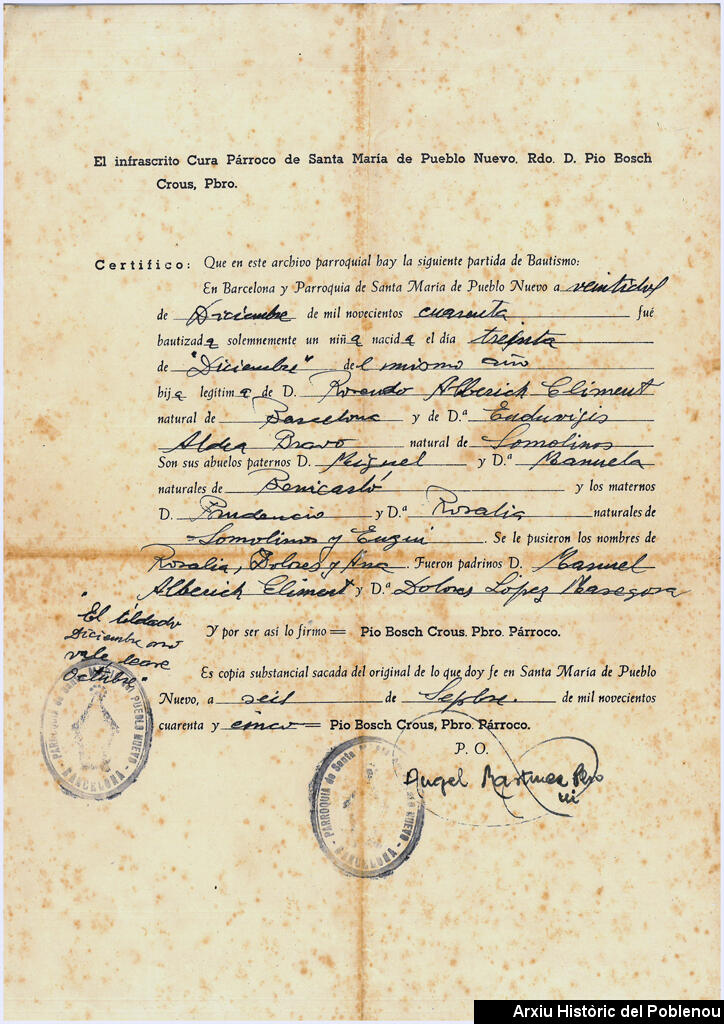 El infrascrito Cura Párroco de Santa María de Pueblo Nuevo, Rdo. D. Pio Bosch
Crous, Pbro.
Certifico: Que en este archivo parroquial hay la siguiente partida de Bautismo:
En Barcelona y Parroquia de Santa María de Pueblo Nuevo a veintidos
de Diciembre de mil novecientos cuarenta fué
bautizada solemnemente un niña nacida el día treinta
de "Diciembre" del mismo año
hija legítima de D. Rosendo Alberich Climent
natural de Barcelona y de D.ª Enduvigis
Aldea Bravo natural de Somolinos
Son sus abuelos paternos D. Miguel y D.ª Manuela
naturales de Benicarló y los maternos
D. Prudencio y D.ª Rosalia naturales de
Somolinos y . Se le pusieron los nombres de
Rosalia, Dolores y Ana. Fueron padrinos D. Manuel
Alberich Climent y D.ª Dolores López Masegosa
"El tildado
Diciembre no
vale, leare
Octubre"
Y por ser así lo firmo = Pio Bosch Crous, Pbro. Párroco.
Es copia substancial sacada del original de lo que doy fe en Santa María de Pueblo
Nuevo, a seis de Sepbre. de mil novecientos
cuarenta y cinco = Pio Bosch Crous, Pbro. Párroco.
P. O.
Angel Martinez Pbro
PARROQUIA de Santa MARIA DEL PUEBLO NUEVO
- BARCELONA -
PARROQUIA de Santa NUEVO
- BARCELONA -
Arxiu Històric del Poblenou